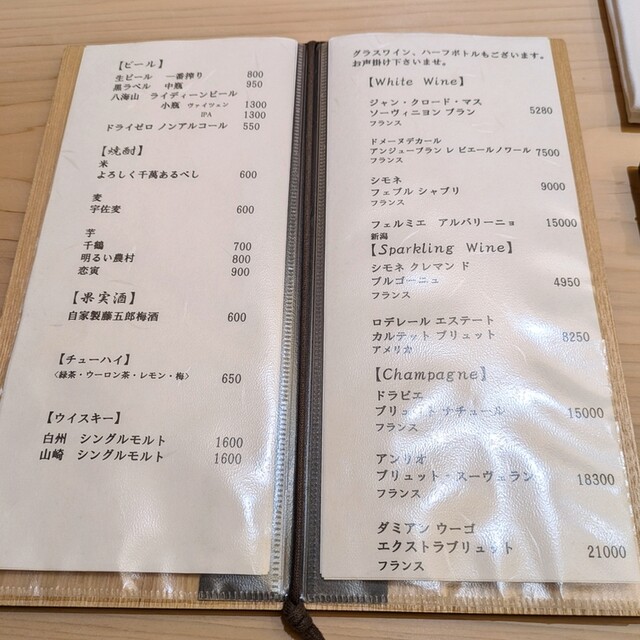 【ビール】
生ビール 一番搾り 800
黒ラベル 中瓶 950
八海山 ライディーンビール
小瓶 ヴァイツェン 1300
IPA 1300
ドライゼロ ノンアルコール 550
【焼酎】
米
よろしく千萬あるべし 600
麦
宇佐麦 600
芋
千鶴 700
明るい農村 800
恋寅 900
【果実酒】
自家製藤五郎梅酒 600
【チューハイ】
〈緑茶・ウーロン茶・レモン・梅〉 650
【ウイスキー】
白州 シングルモルト 1600
山崎 シングルモルト 1600
グラスワイン、ハーフボトルもございます。
お声掛け下さいませ。
【White Wine】
ジャン・クロード・マス
ソーヴィニヨン ブラン 5280
フランス
ドメーヌデカール
アンジューブラン レ ピエールノワール 7500
フランス
シモネ
フェブル シャブリ 9000
フランス
フェルミエ アルバリーニョ 15000
新潟
【Sparkling Wine】
シモネ クレマン ド
ブルゴーニュ 4950
フランス
ロデレール エステート
カルテット ブリュット 8250
アメリカ
【Champagne】
ドラピエ
ブリュット ナチュール 15000
フランス
アンリオ
ブリュット・スーヴェラン 18300
フランス
ダミアン ウーゴ
エクストラブリュット 21000
フランス